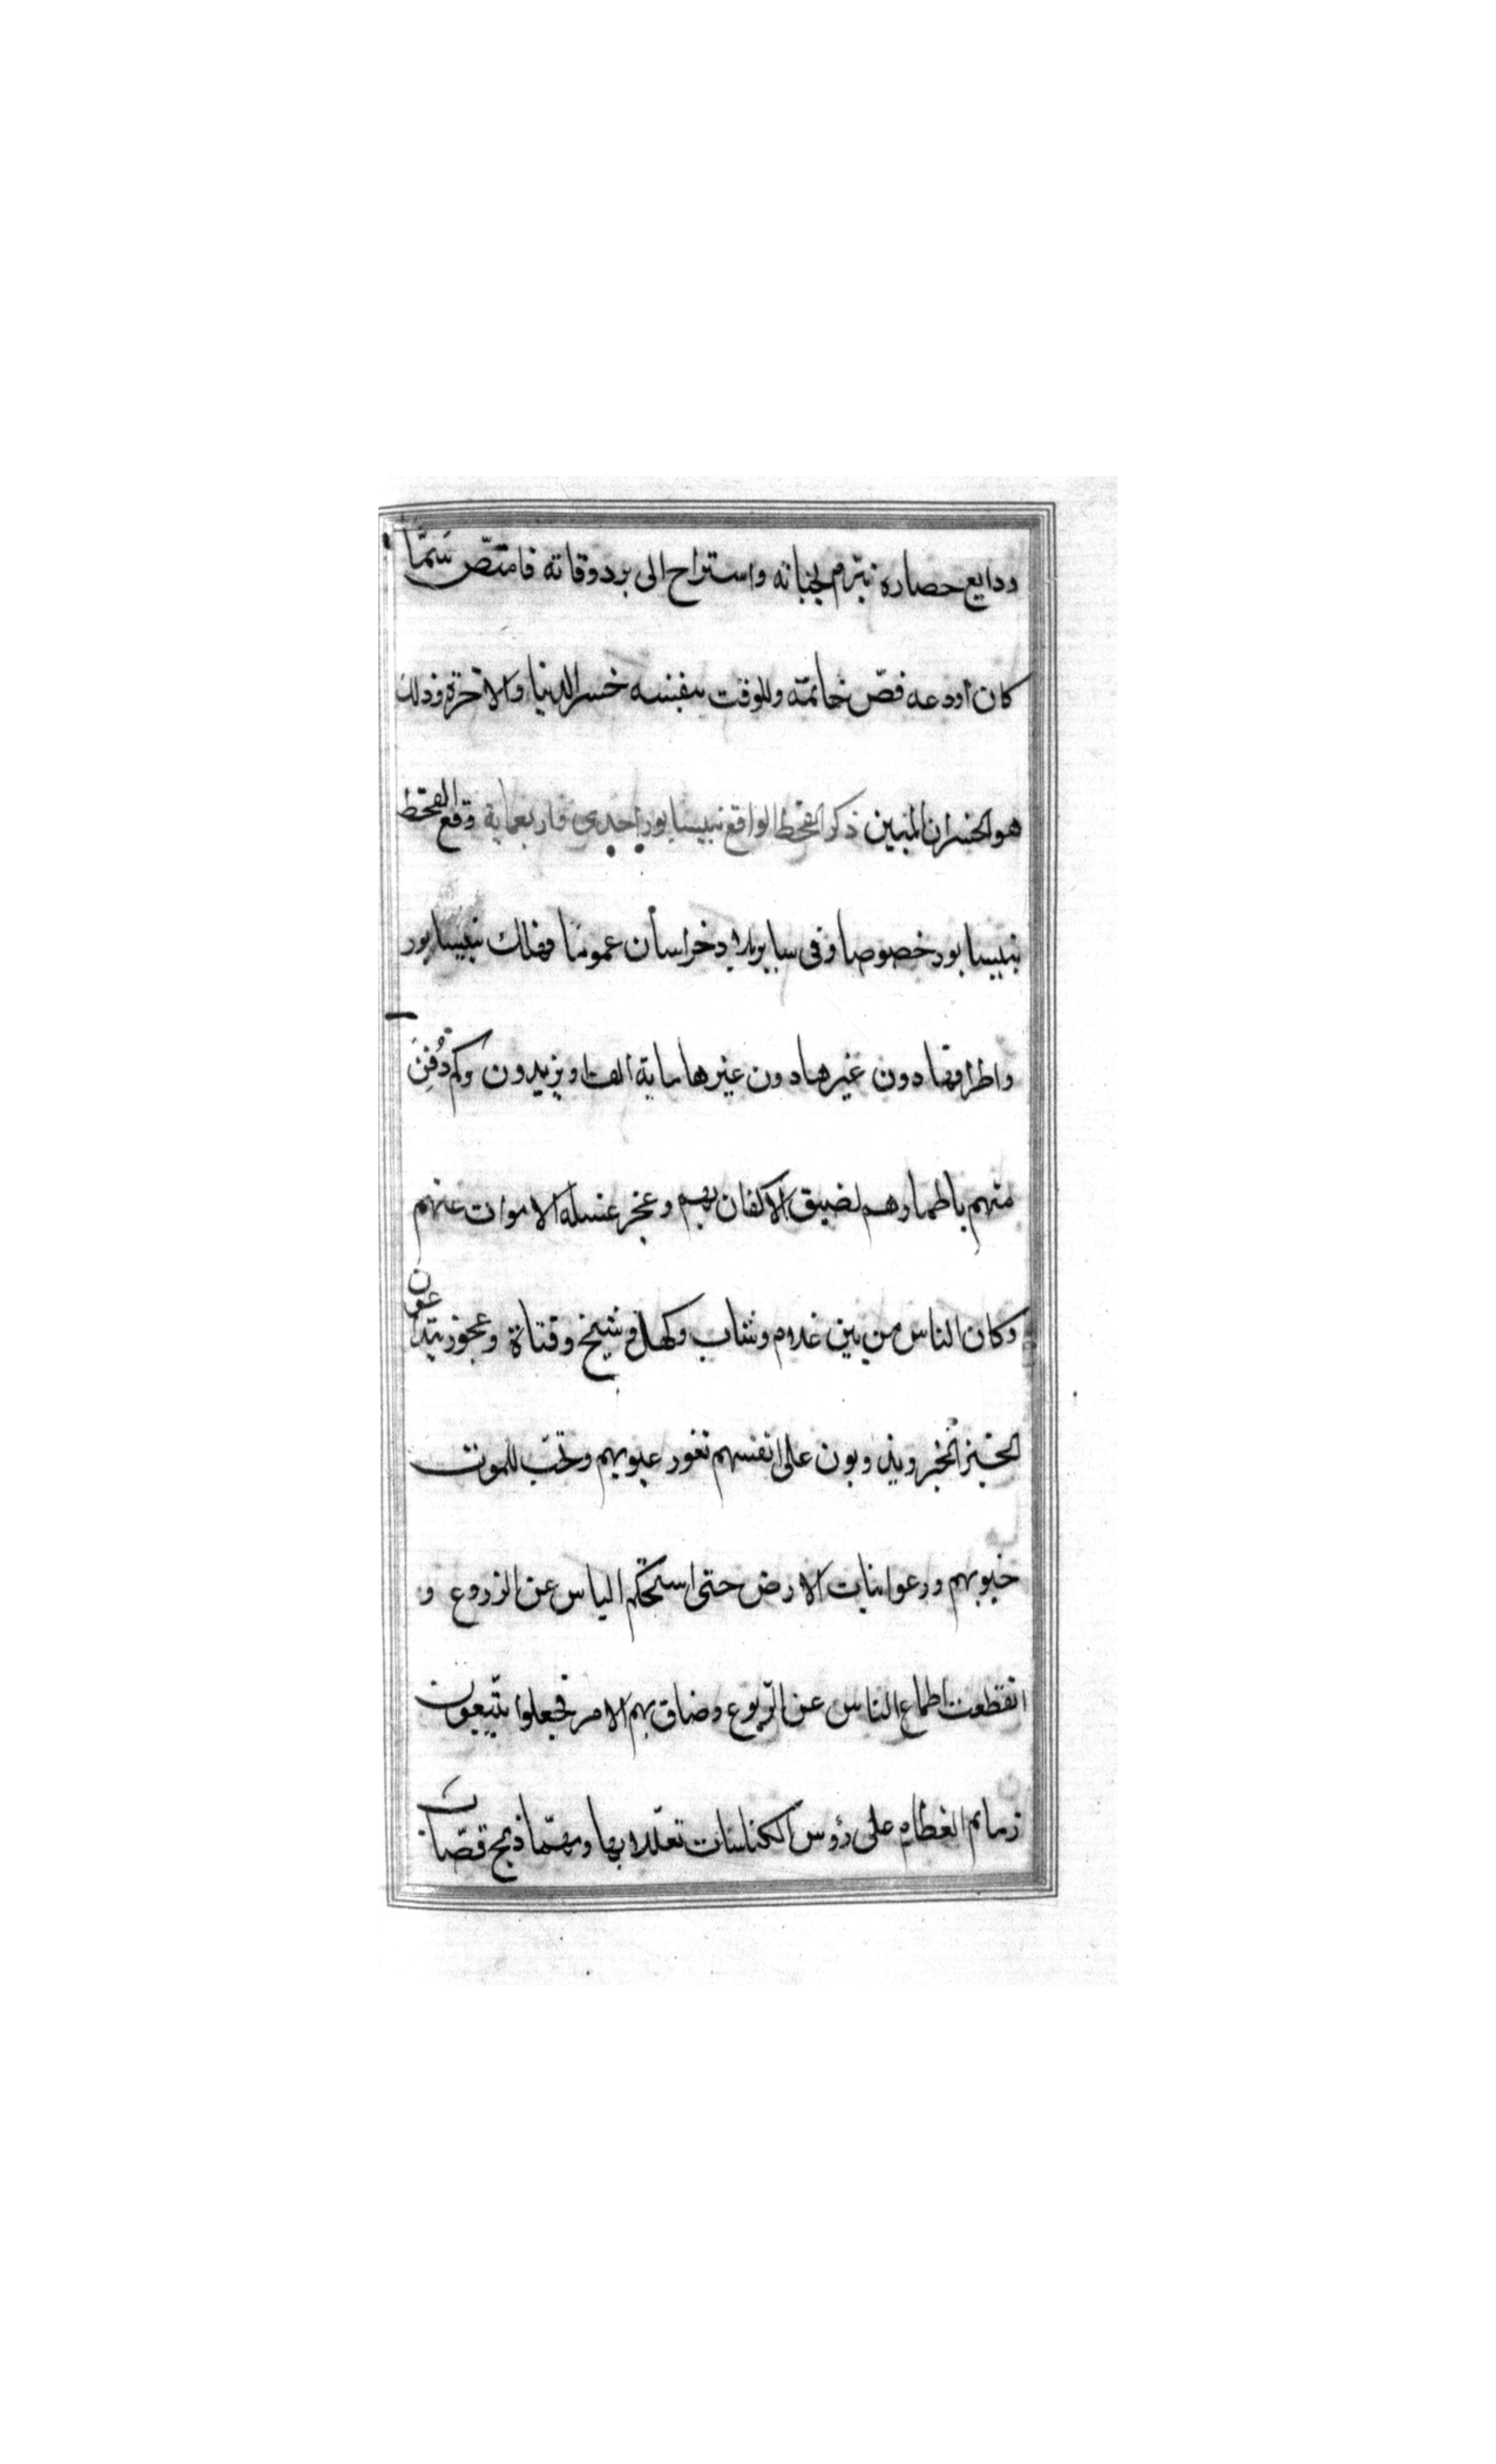 ودايع حصاره تبرم بحياته واستراح الى برد وفاته فامتصّ سَمّا
كان اودعه فصّ خاتمه وللوقت بنفسه خسر الدنيا والاخرة وذلك
هو الخسران المبين ذكر القحط الواقع بنيسابور احدى واربعماية وقع القحط
بنيسابور خصوصا وفى ساير بلاد خراسان عموما فهلك بنيسابور
واطرافها دون غيرها دون غيرها ماية الف او يزيدون وكم دُفِنَ
منهم باطمارهم لضيق الاكفان بهم وعجز غسلة الاموات عنهم
وكان الناس من بين غلام وشاب وكهل وشيخ وفتاة وعجوز يتداعون
الخبز الخبز ويذوبون على انفسهم تغور عيونهم وتحب للموت
جنوبهم ورعوا نبات الارض حتى استحكم الياس عن الزروع و
انقطعت اطماع الناس عن الربوع وضاق بهم الامر فجعلوا يتتبعون
رمايم العظام على رؤس الكناسات تعللا بها ومهما ذبح قصّاب